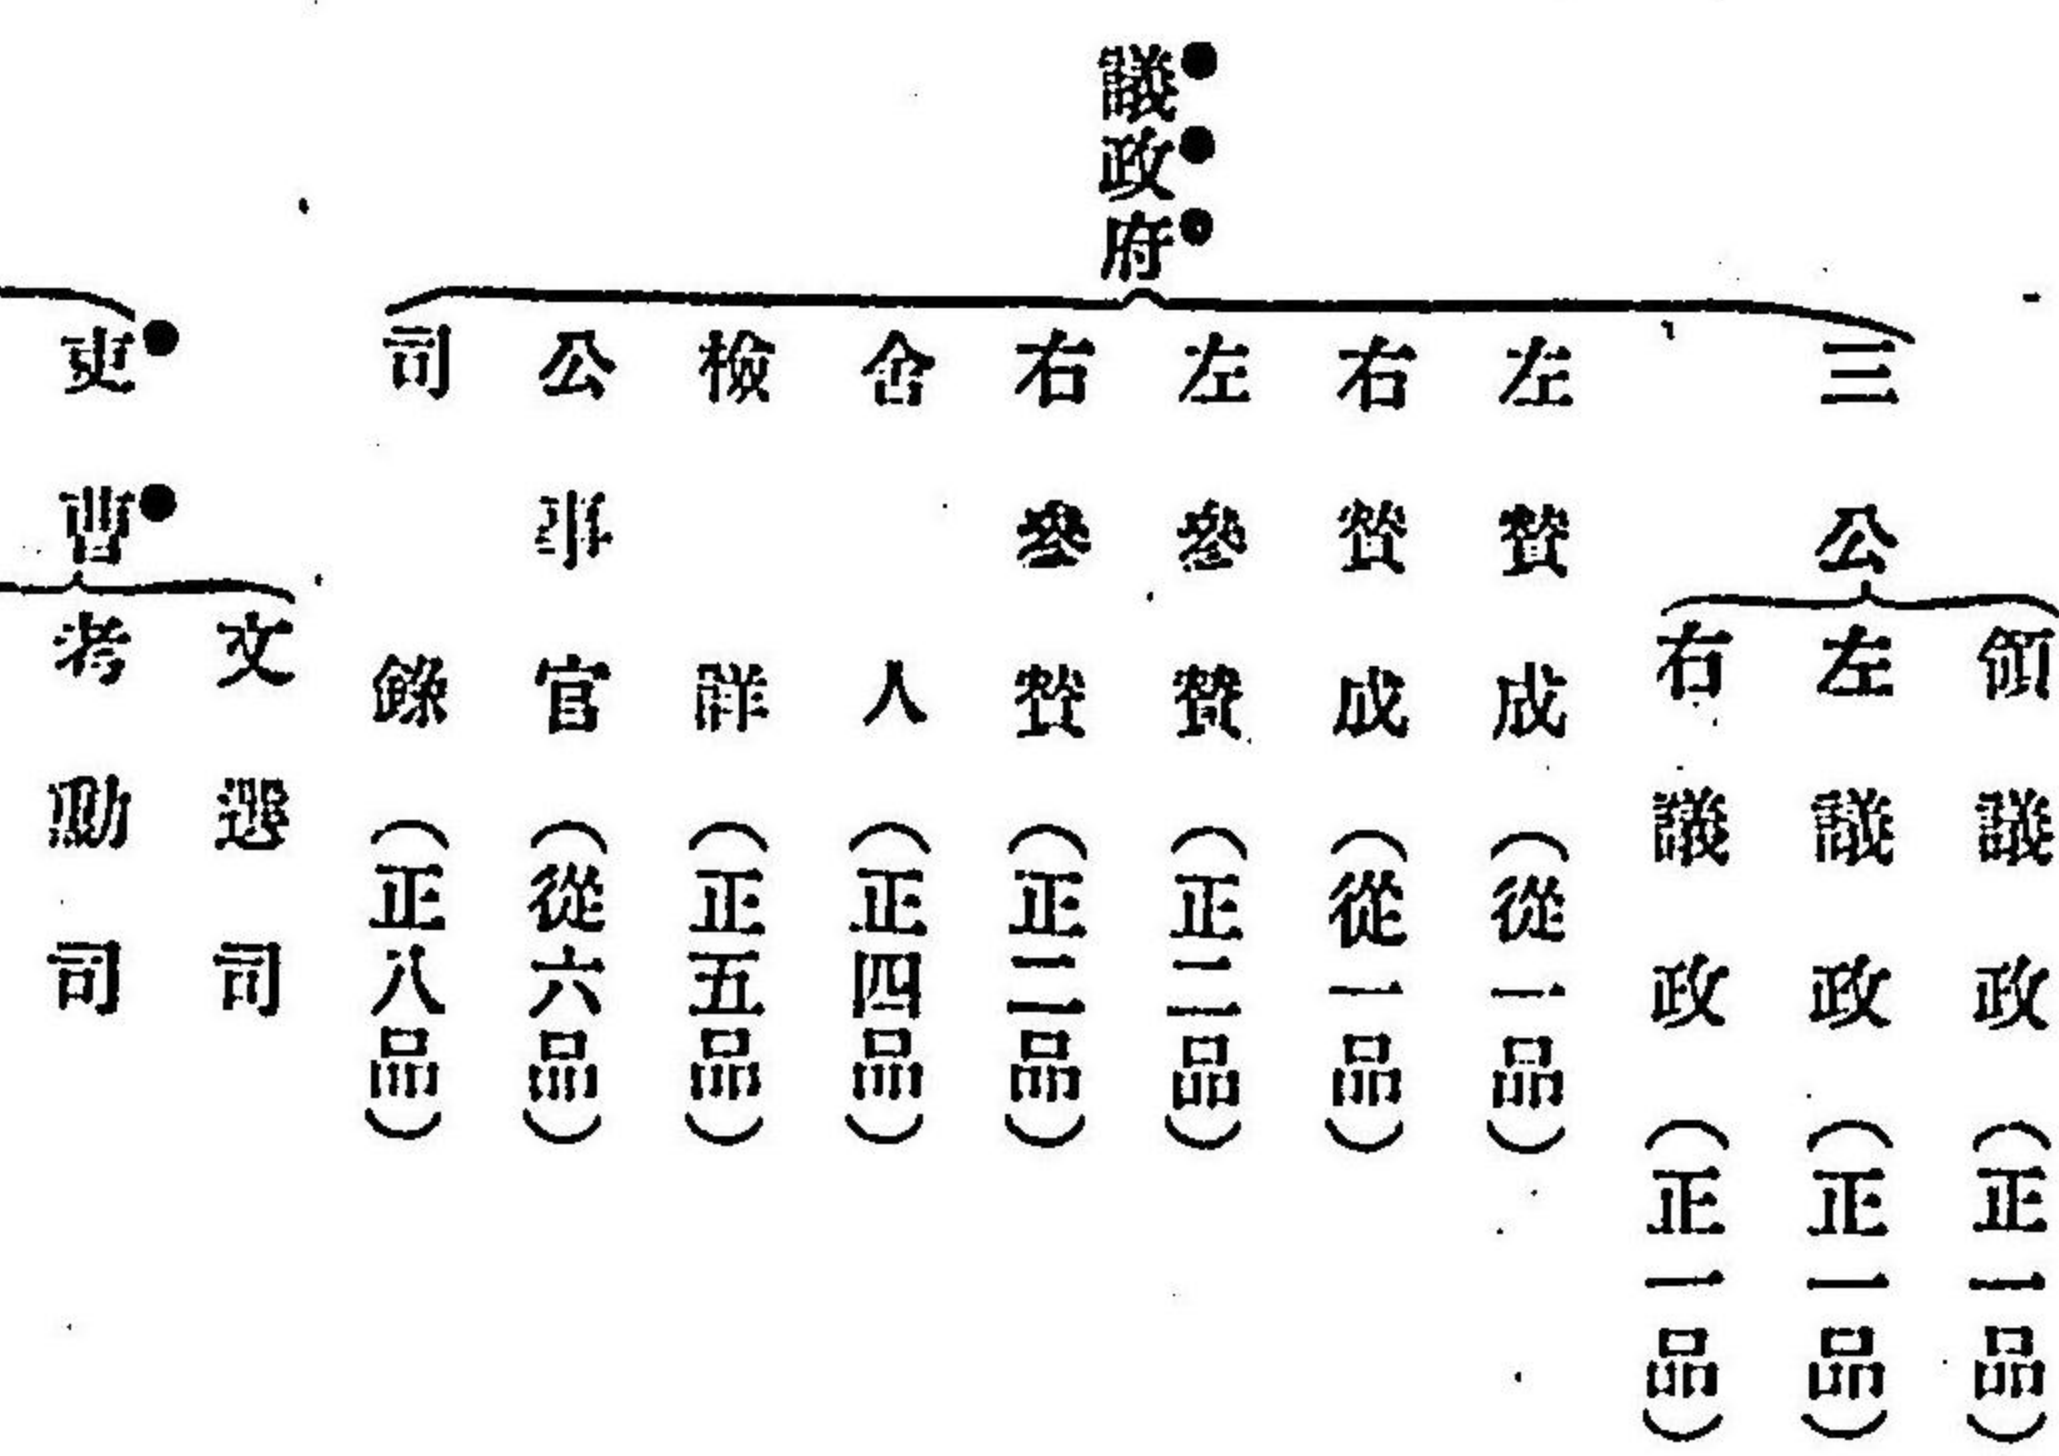 議政府
三公
領議政(正一品)
左議政(正一品)
右議政(正一品)
左贊成(從一品)
右贊成(從一品)
左參贊(正二品)
右參贊(正二品)
舍人(正四品)
檢詳(正五品)
公事官(從六品)
司錄(正八品)
吏曹
文選司
考勳司